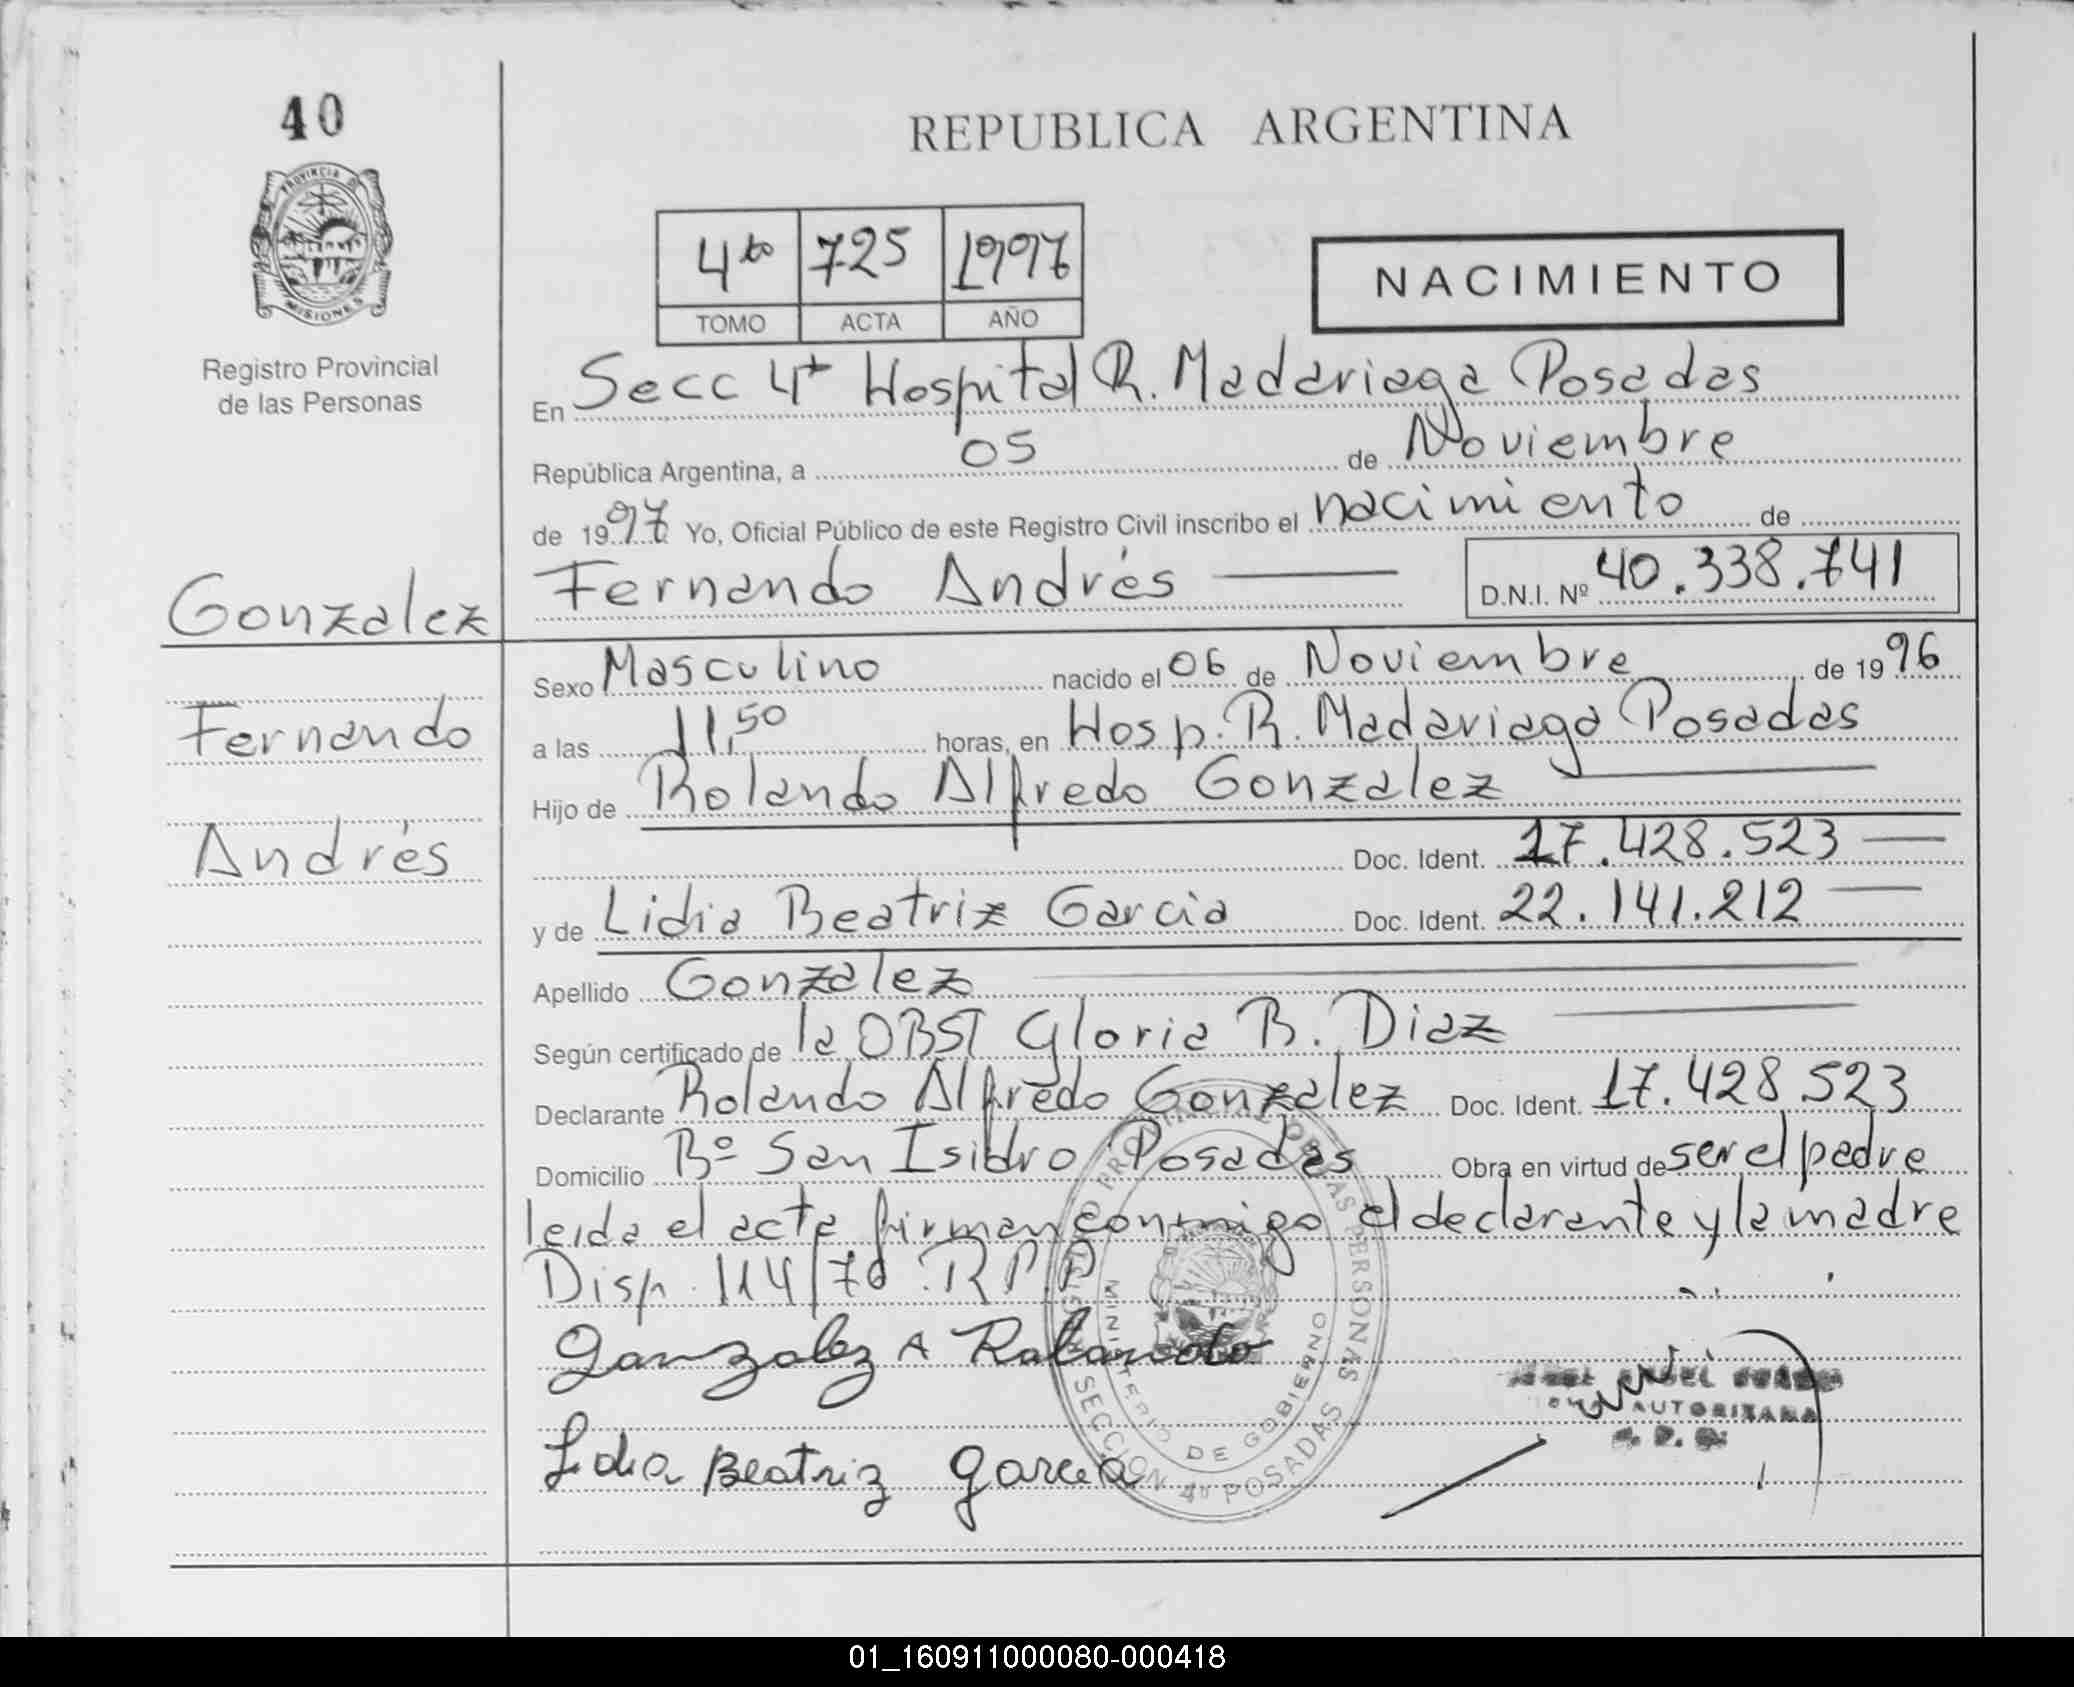 40
REPUBLICA ARGENTINA
PROVINCIA DE
MISIONES
4to 725 1997
TOMO ACTA AÑO
NACIMIENTO
Registro Provincial
de las Personas
En Secc 4ta Hospital R. Madariaga Posadas
República Argentina, a 05 de Noviembre
de 1997 Yo, Oficial Público de este Registro Civil inscribo el nacimiento de
Gonzalez
Fernando Andrés
D.N.I. Nº 40.338.741
Sexo Masculino nacido el 06 de Noviembre de 1996
Fernando
a las 11,50 horas, en Hosp. R. Madariaga Posadas
Hijo de Rolando Alfredo Gonzalez
Andrés
Doc. Ident. 17.428.523
y de Lidia Beatriz Garcia Doc. Ident. 22.141.212
Apellido Gonzalez
Según certificado de la OBST Gloria B. Diaz
Declarante Rolando Alfredo Gonzalez Doc. Ident. 17.428.523
Domicilio Bº San Isidro Posadas Obra en virtud de ser el padre
leida el acta firman conmigo el declarante y la madre
Disp. 114/78 R P P
Gonzalez A Rolando
AUTORIZADA
Lidia Beatriz Garcia
MINISTERIO DE GOBIERNO
SECCION 4ta POSADAS
01_160911000080-000418